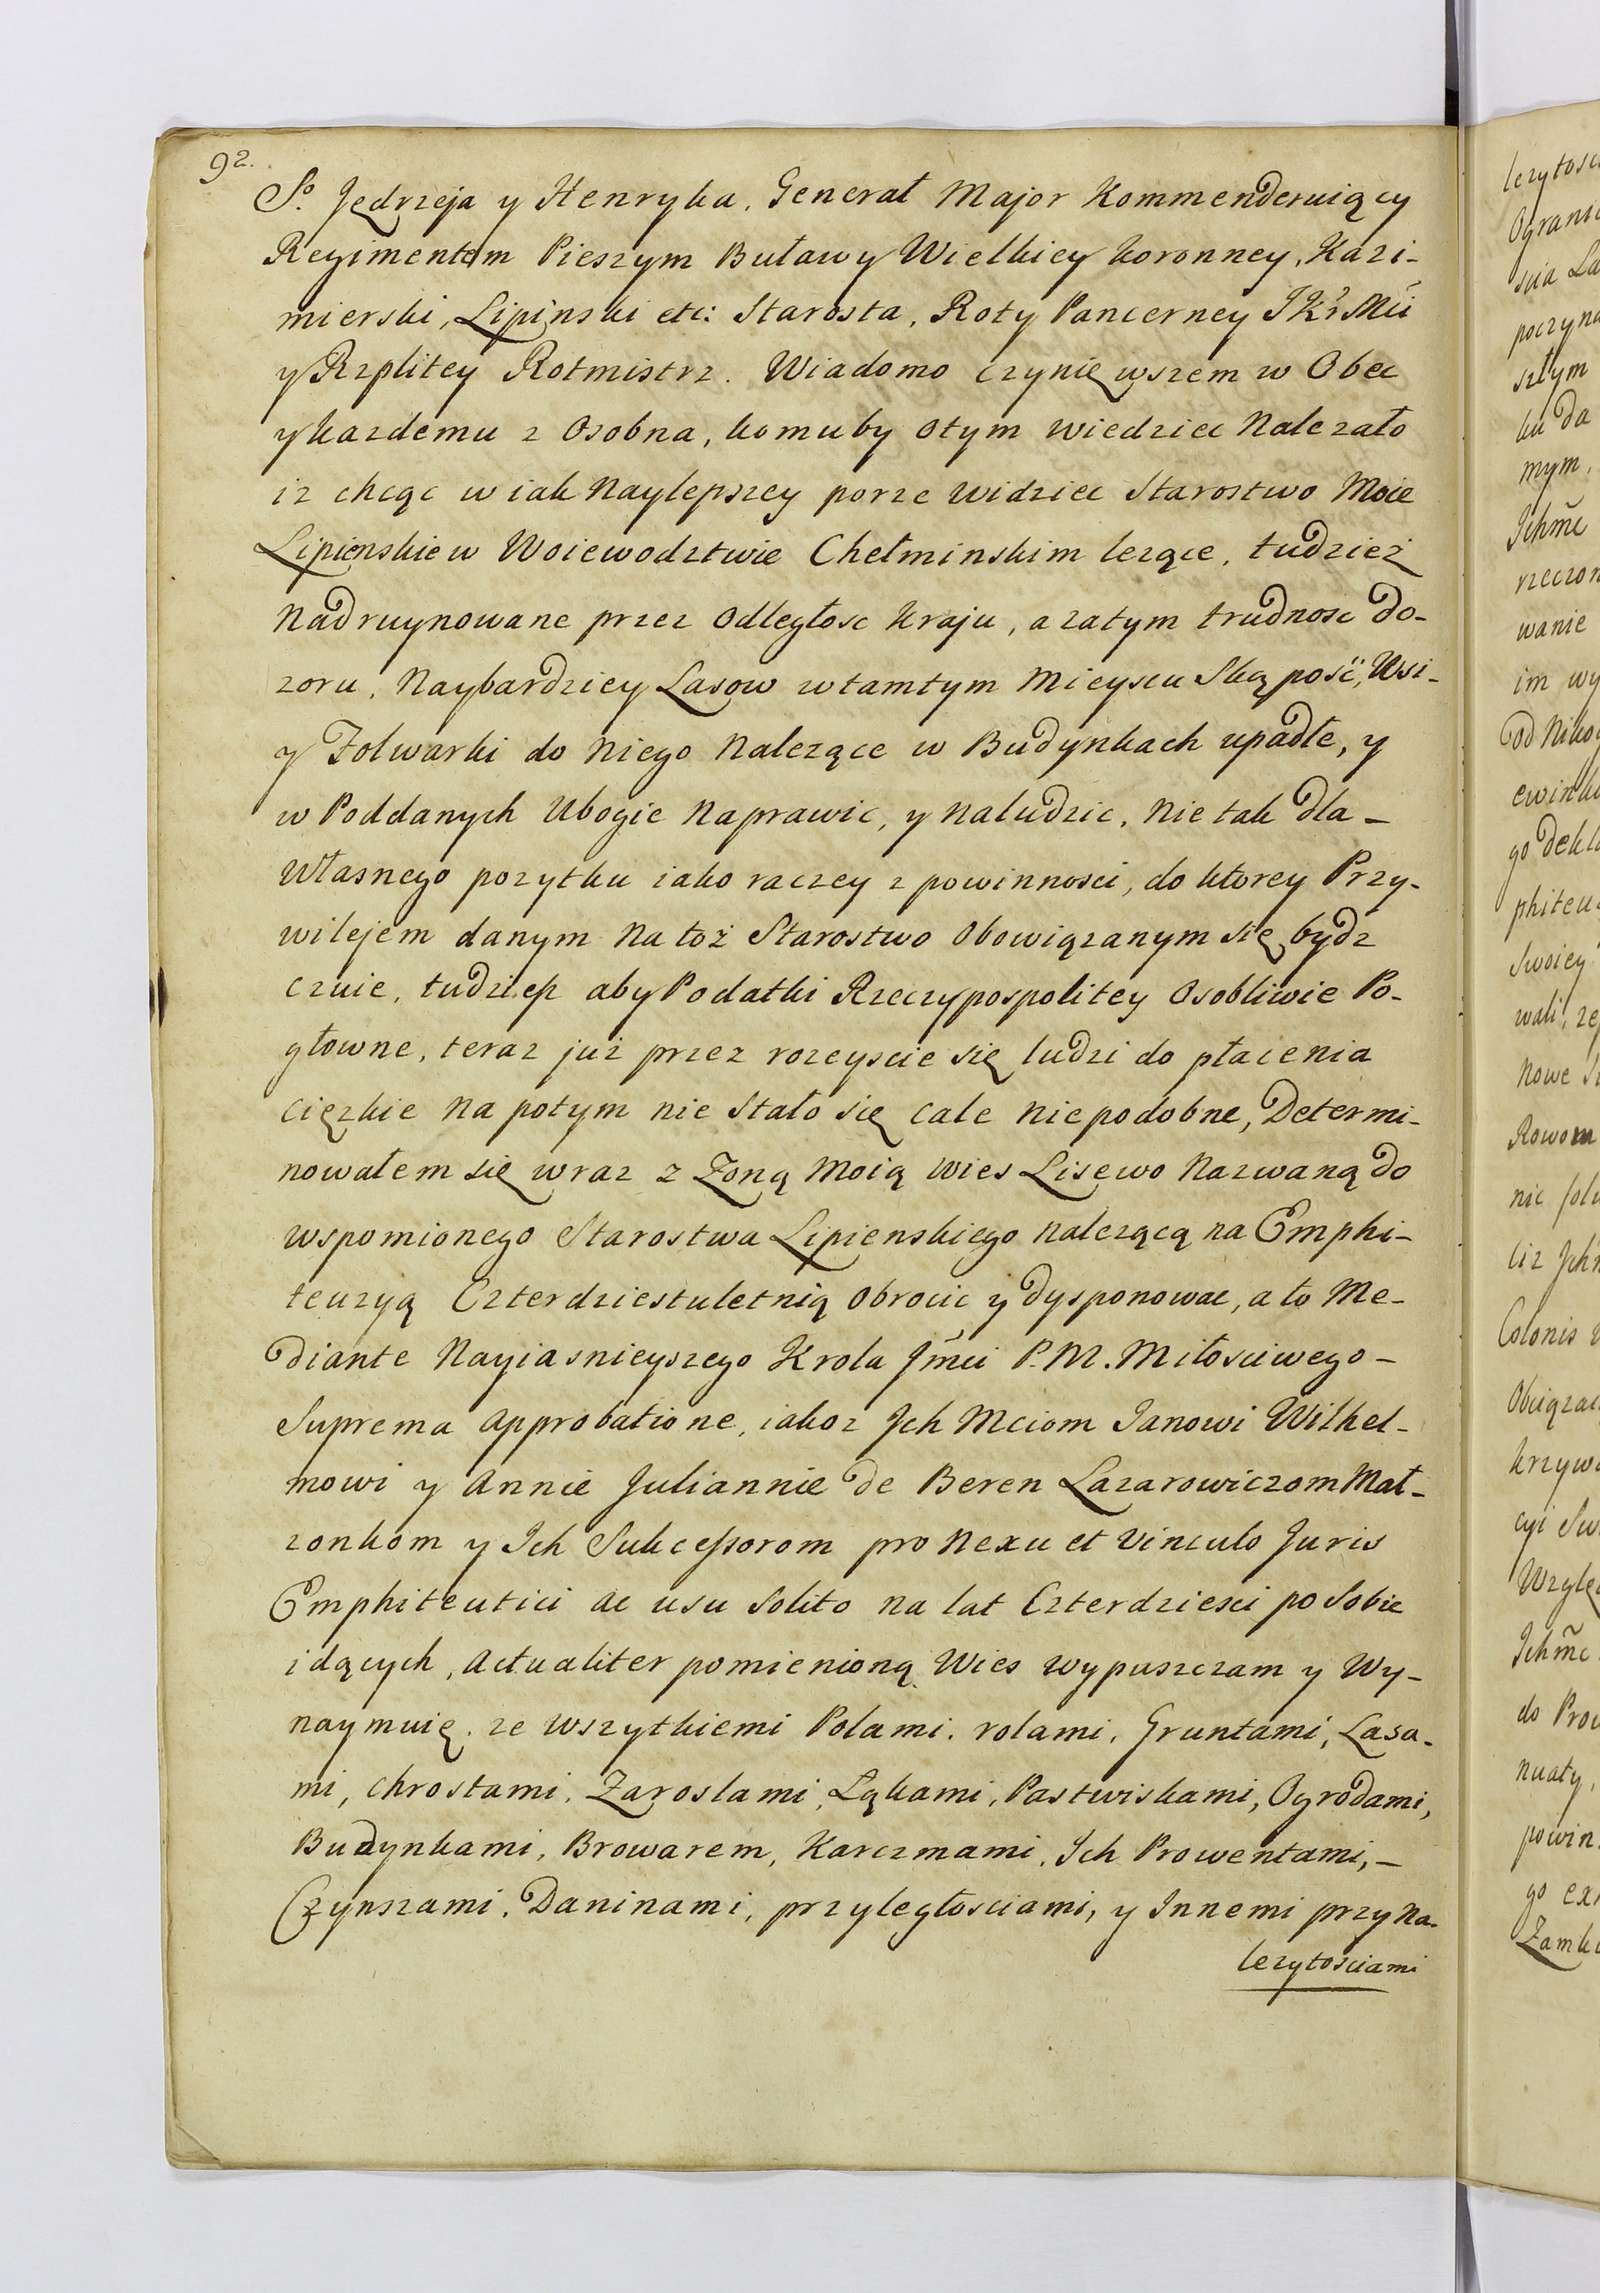 92.
So. Jędrzeja y Henryka, Generał Major Kommenderuiący
Regimentem Pieszym Buławy Wielkiey Koronney, Kazi-
mierski, Lipinski etc: Starosta, Roty Pancerney JKr Mci
y Rzplitey Rotmistrz. Wiadomo czynię wszem w Obec
y kazdemu z Osobna, komuby Otym wiedziec Nalezało
iz chcąc w iak Naylepszey porze widziec Starostwo Moie
Lipienskie w Woiewodztwie Chełminskim lezące, tudzież
Nadruynowane przez Odległosc Kraju, a zatym trudnosc Do-
zoru, Naybardziey Lasow w tamtym Mieyscu Skąposć, Wsi-
y Folwarki do Niego Nalezące w Budynkach upadłe, y
w Poddanych Ubogie Naprawic, y Naludzic, Nie tak Dla-
Własnego pozytku iako raczey z powinnosci, do ktorey Przy-
wilejem danym Na toż Starostwo Obowiązanym się bydz
czuie, tudziesz aby Podatki Rzeczypospolitey Osobliwie Po-
głowne, teraz już przez rozeyscie się ludzi do płacenia
cięzkie Na potym nie Stało się cale Niepodobne, Determi-
nowałem się wraz z Zoną Moią Wies Lisewo Nazwaną Do
wspomionego Starostwa Lipienskiego Nalezącą na Emphi-
teuzyą Czterdziestuletnią Obrocic y dysponowac, a to Me-
diante Nayiasnieyszego Krola Jmci P. M. Miłosciwego-
Suprema Approbatione, iakoz Ich Mciom Janowi Wilhel-
mowi y Annie Juliannie De Beren Lazarowiczom Mał-
zonkom y Ich Sukcessorom pro Nexu et Vinculo Juris
Emphiteutici ac usu Solito Na lat Czterdziesci po Sobie
idących, Actualiter pomienioną Wies wypuszczam y Wy-
naymuię, ze wszytkiemi Polami, rolami, Gruntami, Lasa-
mi, chrostami, Zaroslami, Łąkami, Pastwiskami, Ogrodami,
Budynkami, Browarem, Karczmami, Ich Prowentami,-
Czynszami, Daninami, przyległosciami, y Innemi przyna-
lezytosciami